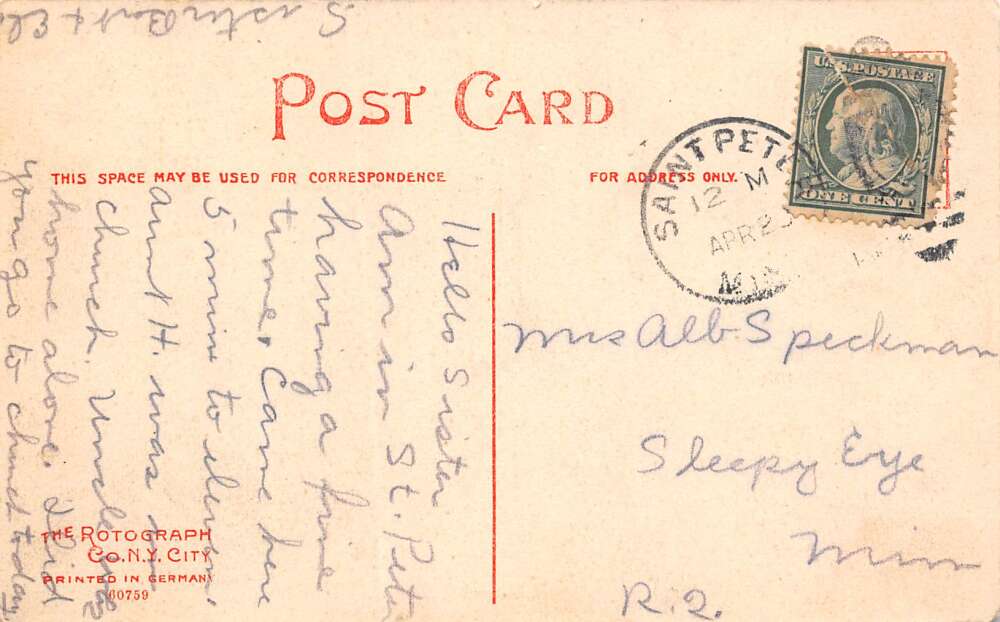 POST CARD
THIS SPACE MAY BE USED FOR CORRESPONDENCE
FOR ADDRESS ONLY.
U.S. POSTAGE
ONE CENT
SAINT PETER
12 M
APR 23
MIN
Hello Sister
Am in St. Peter
having a fine
time. Came here
5 min to eleven.
Aunt H. was in
church. Uncle was
home alone. Did
you go to church today
Sister
Mrs Alb. Speckman
Sleepy Eye
Minn
R.2.
THE ROTOGRAPH
CO. N.Y. CITY
PRINTED IN GERMANY
60759